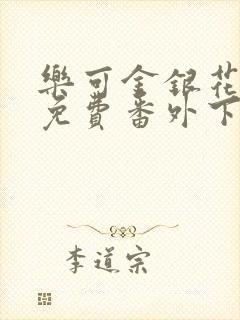 樂可金銀花
免費番外下
李道宗